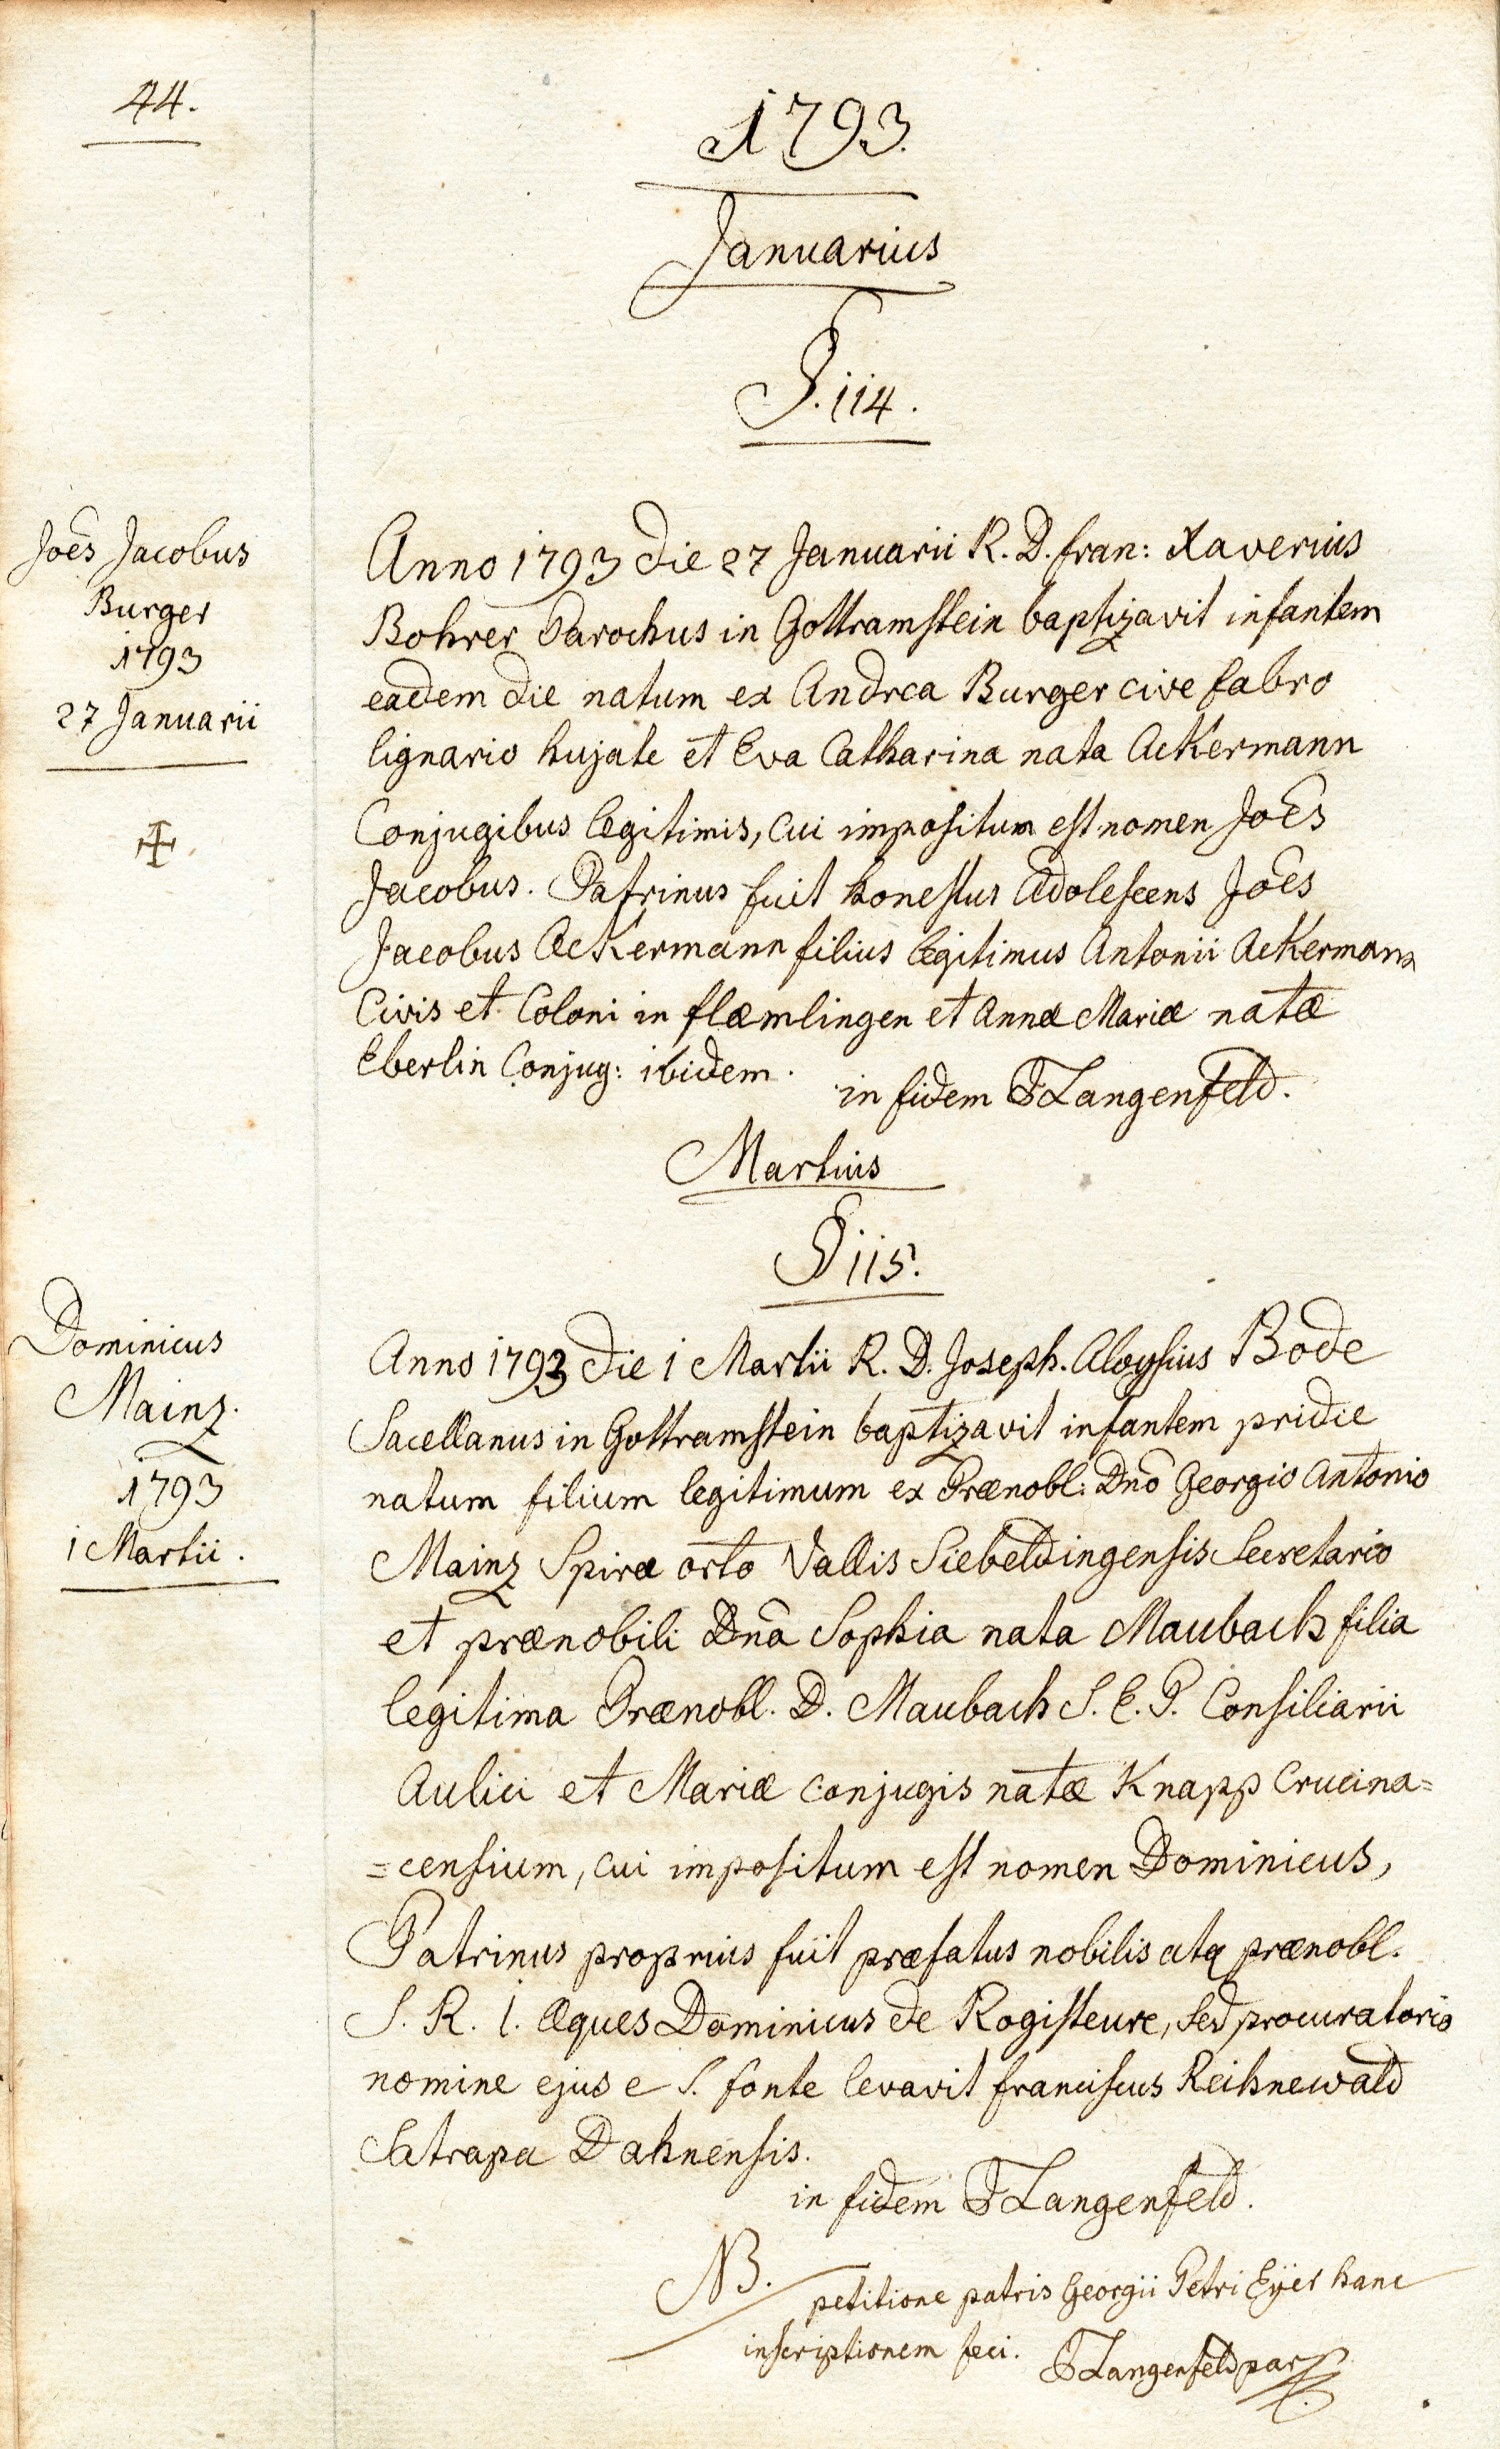 44.
1793.
Januarius
§. 114.
Joês Jacobus
Burger
1793
27 Januarii
Anno 1793 die 27 Januarii R. D. fran: Xaverius
Bohrer Parochus in Gottramstein baptizavit infantem
eadem die natum ex Andrea Burger cive fabro
lignario hujate et Eva Catharina nata Ackermann
Conjugibus legitimis, cui impositum est nomen Joês
Jacobus. Patrinus fuit honestus Adolescens Joês
Jacobus Ackermann filius legitimus Antonii Ackermann
Civis et Coloni in flæmlingen et Annæ Mariæ natæ
Eberlin Conjug: ibidem.
in fidem FLangenfeld.
Martius
§ 115.
Dominicus
Mainz.
1793
1 Martii.
Anno 1793 die 1 Martii R. D. Joseph. Aloysius Bode
Sacellanus in Gottramstein baptizavit infantem pridie
natum filium legitimum ex Prænobl: Dnô Georgio Antonio
Mainz Spiræ orto Vallis Siebeldingensis Secretario
et prænobili Dnâ Sophia nata Maubach filia
legitima Prænobl. D. Maubach S. E. P. Consiliarii
Aulici et Mariæ conjugis natæ Knapp Crucina=
=censium, cui impositum est nomen Dominicus,
Patrinus proprius fuit præfatus nobilis atq prænobl.
S. R. I. Æques Dominicus de Rogisteure, sed procuratorio
nomine ejus e S. fonte levavit franciscus Reihnewald
Satrapa Dahnensis.
in fidem FLangenfeld.
NB.
petitione patris Georgii Petri Eÿer hanc
inscriptionem feci. FLangenfeld par